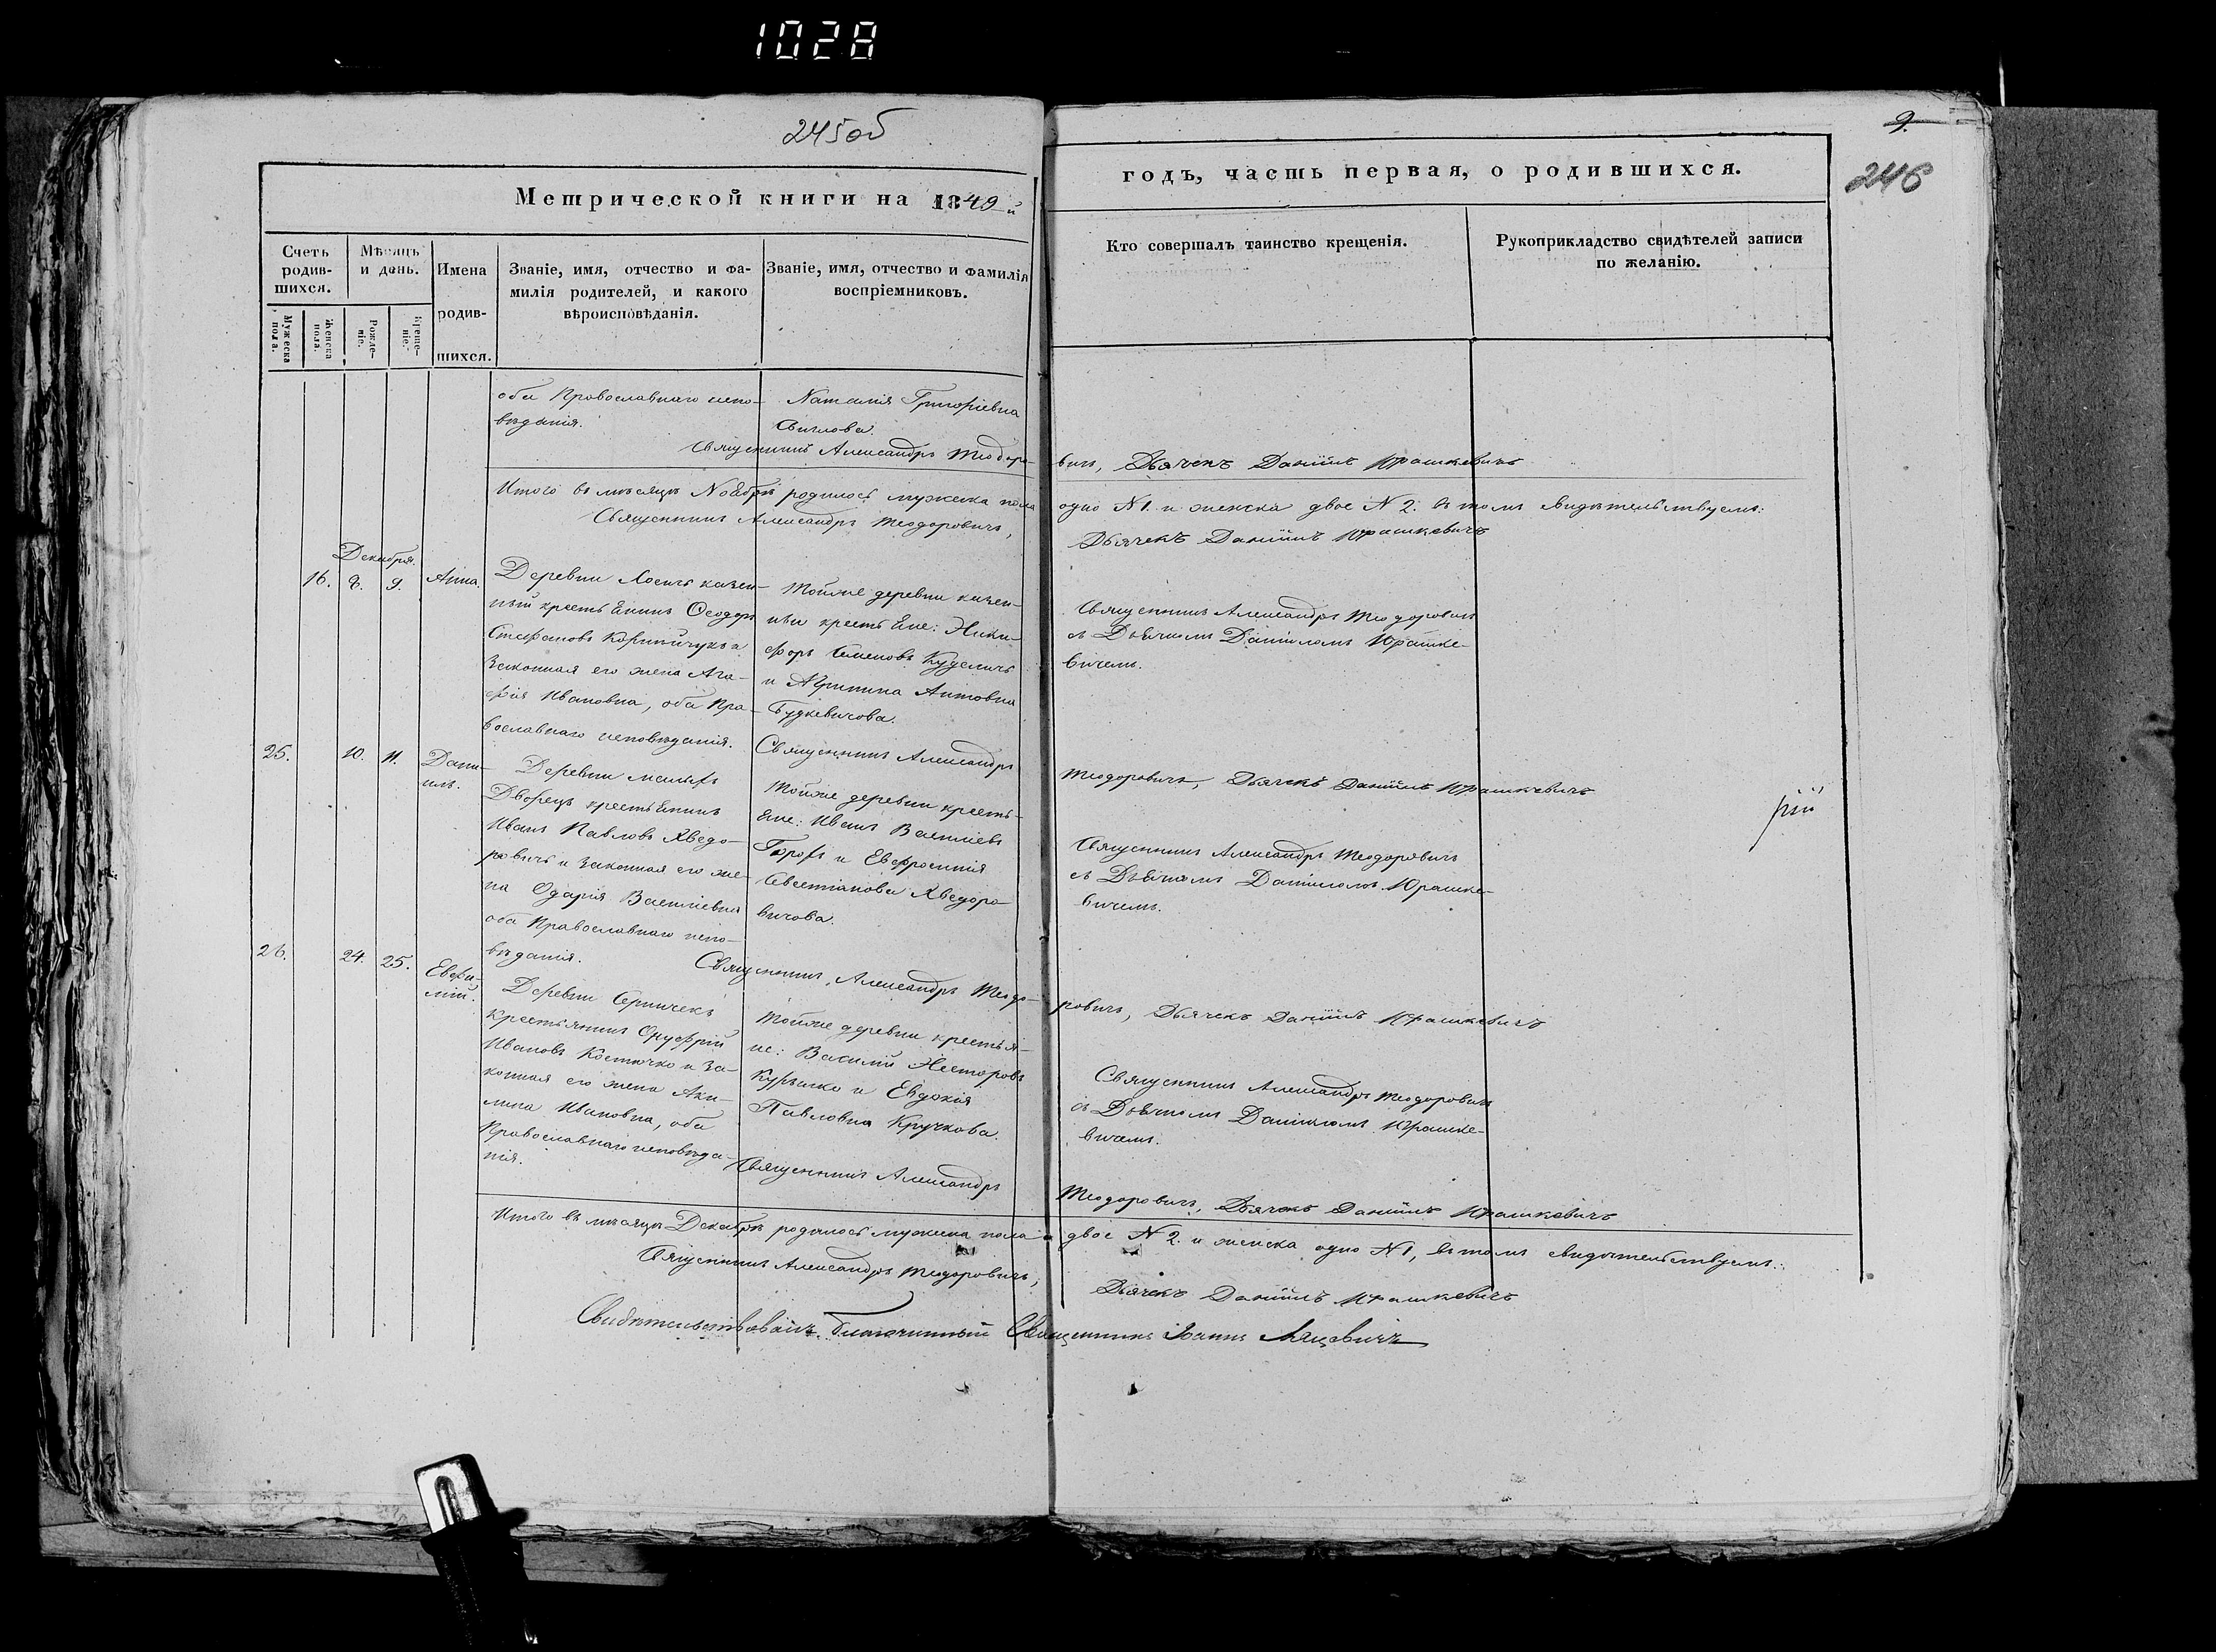 1028
245об
9.
246
Метрической книги на 1849й
годъ, часть первая, о родившихся.
Счетъ родив-
шихся.
Мужеска пола.
Женска пола.
Мѣсяцъ и день.
Рожде-
ніе.
Креще-
ніе.
Имена
родив-
шихся.
Званіе, имя, отчество и фа-
милія родителей, и какого
вѣроисповѣданія.
Званіе, имя, отчество и фамилія
воспріемниковъ.
Кто совершалъ таинство крещенія.
Рукоприкладство свидѣтелей записи
по желанію.
оба Православнаго испо-
вѣданія.
Наталія Григоріевна
Священникъ Александръ Теодоро-
вичъ, Дьячекъ Даніилъ Юрашкевичъ
Итого въ мѣсяцѣ Ноябрѣ родилось мужеска пола
одно N 1. и женска двое N 2. въ томъ свидѣтельствуемъ:
Священникъ Александръ Теодоровичъ,
Дьячекъ Даніилъ Юрашкевичъ
Декабря.
16. 8. 9. Анна.
Деревни Лосичъ казен-
ный крестьенинъ Ѳеодоръ
Стефановъ Корнійчукъ и
законная его жена Ага-
фія Ивановна, оба Пра-
вославнаго исповѣданія.
Тойже деревни казен-
ныи крестьене: Ники-
форъ Семеновъ Куделичъ
и Акулина Антовна
Будкевичова.
Священникъ Александръ Теодоровичъ
съ Дьячкомъ Даніиломъ Юрашке-
вичемъ.
Священникъ Александръ
Теодоровичъ, Дьячекъ Даніилъ Юрашкевичъ
25. 10. 11. Дани-
илъ.
Деревни малыхъ
Дворецъ крестьенинъ
Иванъ Павловъ Хведо-
ровичъ и законная его же-
на Одарія Василіевна
оба Православнаго испо-
вѣданія.
Тойже деревни кресть-
ене: Иванъ Василіевъ
и Евфросинія
Севестіанова Хведоро-
вичова.
Священникъ Александръ Теодоровичъ
съ Дьячкомъ Даніиломъ Юрашке-
вичемъ.
Священникъ Александръ Теодо-
ровичъ, Дьячекъ Даніилъ Юрашкевичъ
26. 24. 25. Евфи-
мій.
Деревни Серничекъ
Крестьянинъ Онуфрій
Ивановъ Костючко и за-
конная его жена Аки-
лина Ивановна, оба
Православнаго исповѣда-
нія.
Тойже деревни крестья-
не: Василій Несторовъ
Курылко и Евдокія
Павловна Кручкова.
Священникъ Александръ Теодоровичъ
съ Дьячкомъ Даніиломъ Юрашке-
вичемъ.
Священникъ Александръ
Теодоровичъ, Дьячекъ Даніилъ Юрашкевичъ
Итого въ мѣсяцѣ Декабрѣ родилось мужеска пола
двое N 2. и женска одно N 1, въ томъ свидѣтельствуемъ:
Священникъ Александръ Теодоровичъ,
Дьячекъ Даніилъ Юрашкевичъ
Свидѣтельствовалъ Благочинный Священникъ Іоаннъ Ляцевичъ